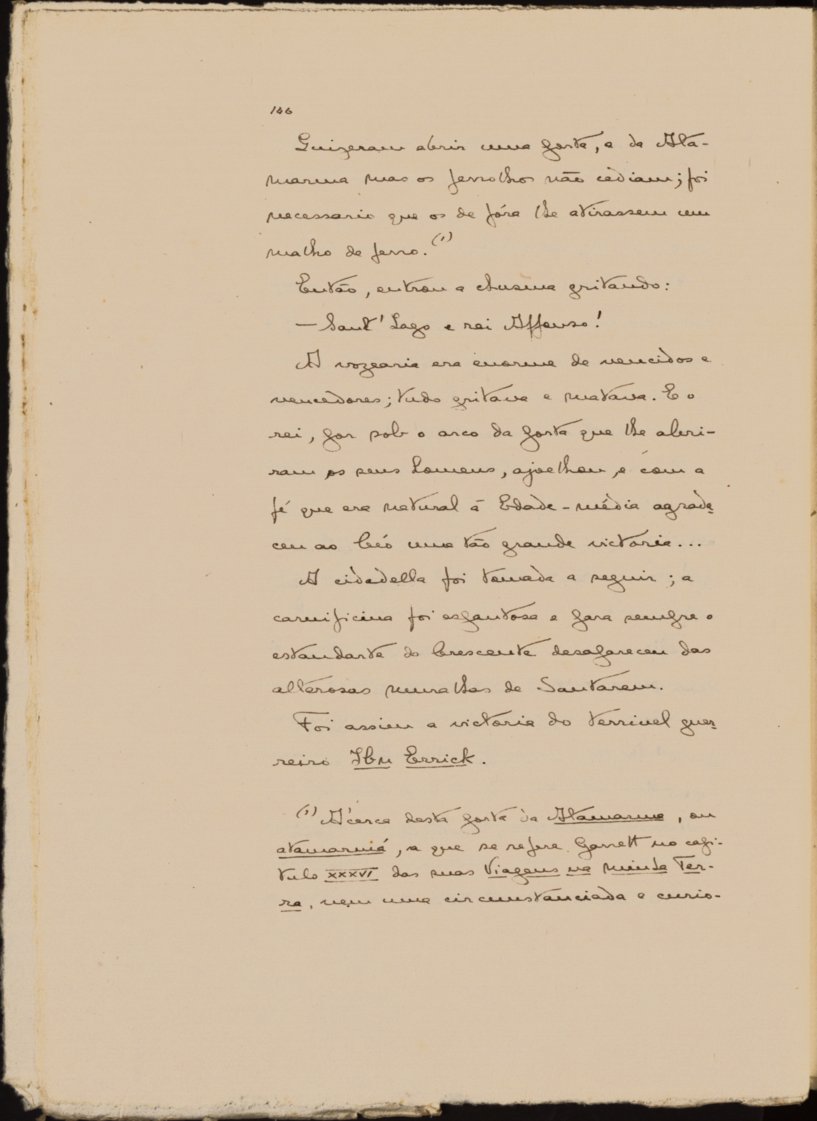 146
Quizeram abrir uma porta, a da Ata-
marma mas os ferrolhos não cediam; foi
necessario que os de fóra lhe atirassem um
malho de ferro. (1)
Então, entrou a chusma gritando:
— Sant'Iago e rei Affonso!
A vozearia era enorme de vencidos e
vencedores; tudo gritava e matava. E o
rei, por sob o arco da porta que lhe abri-
ram os seus homens, ajoelhou, e com a
fé que era natural á Edade-média agrade-
ceu ao Céo uma tão grande victoria...
A cidadella foi tomada a seguir; a
carnificina foi espantosa e para sempre o
estandarte do Crescente desappareceu das
alterosas muralhas de Santarem.
Foi assim a victoria do terrivel guer-
reiro Ibn Errick.
(1) Ácerca desta porta da Atamarma, ou
atamarmá, a que se refere Garrett no capi-
tulo XXXVI das suas Viagens na minha Ter-
ra, vem uma circumstanciada e curio-